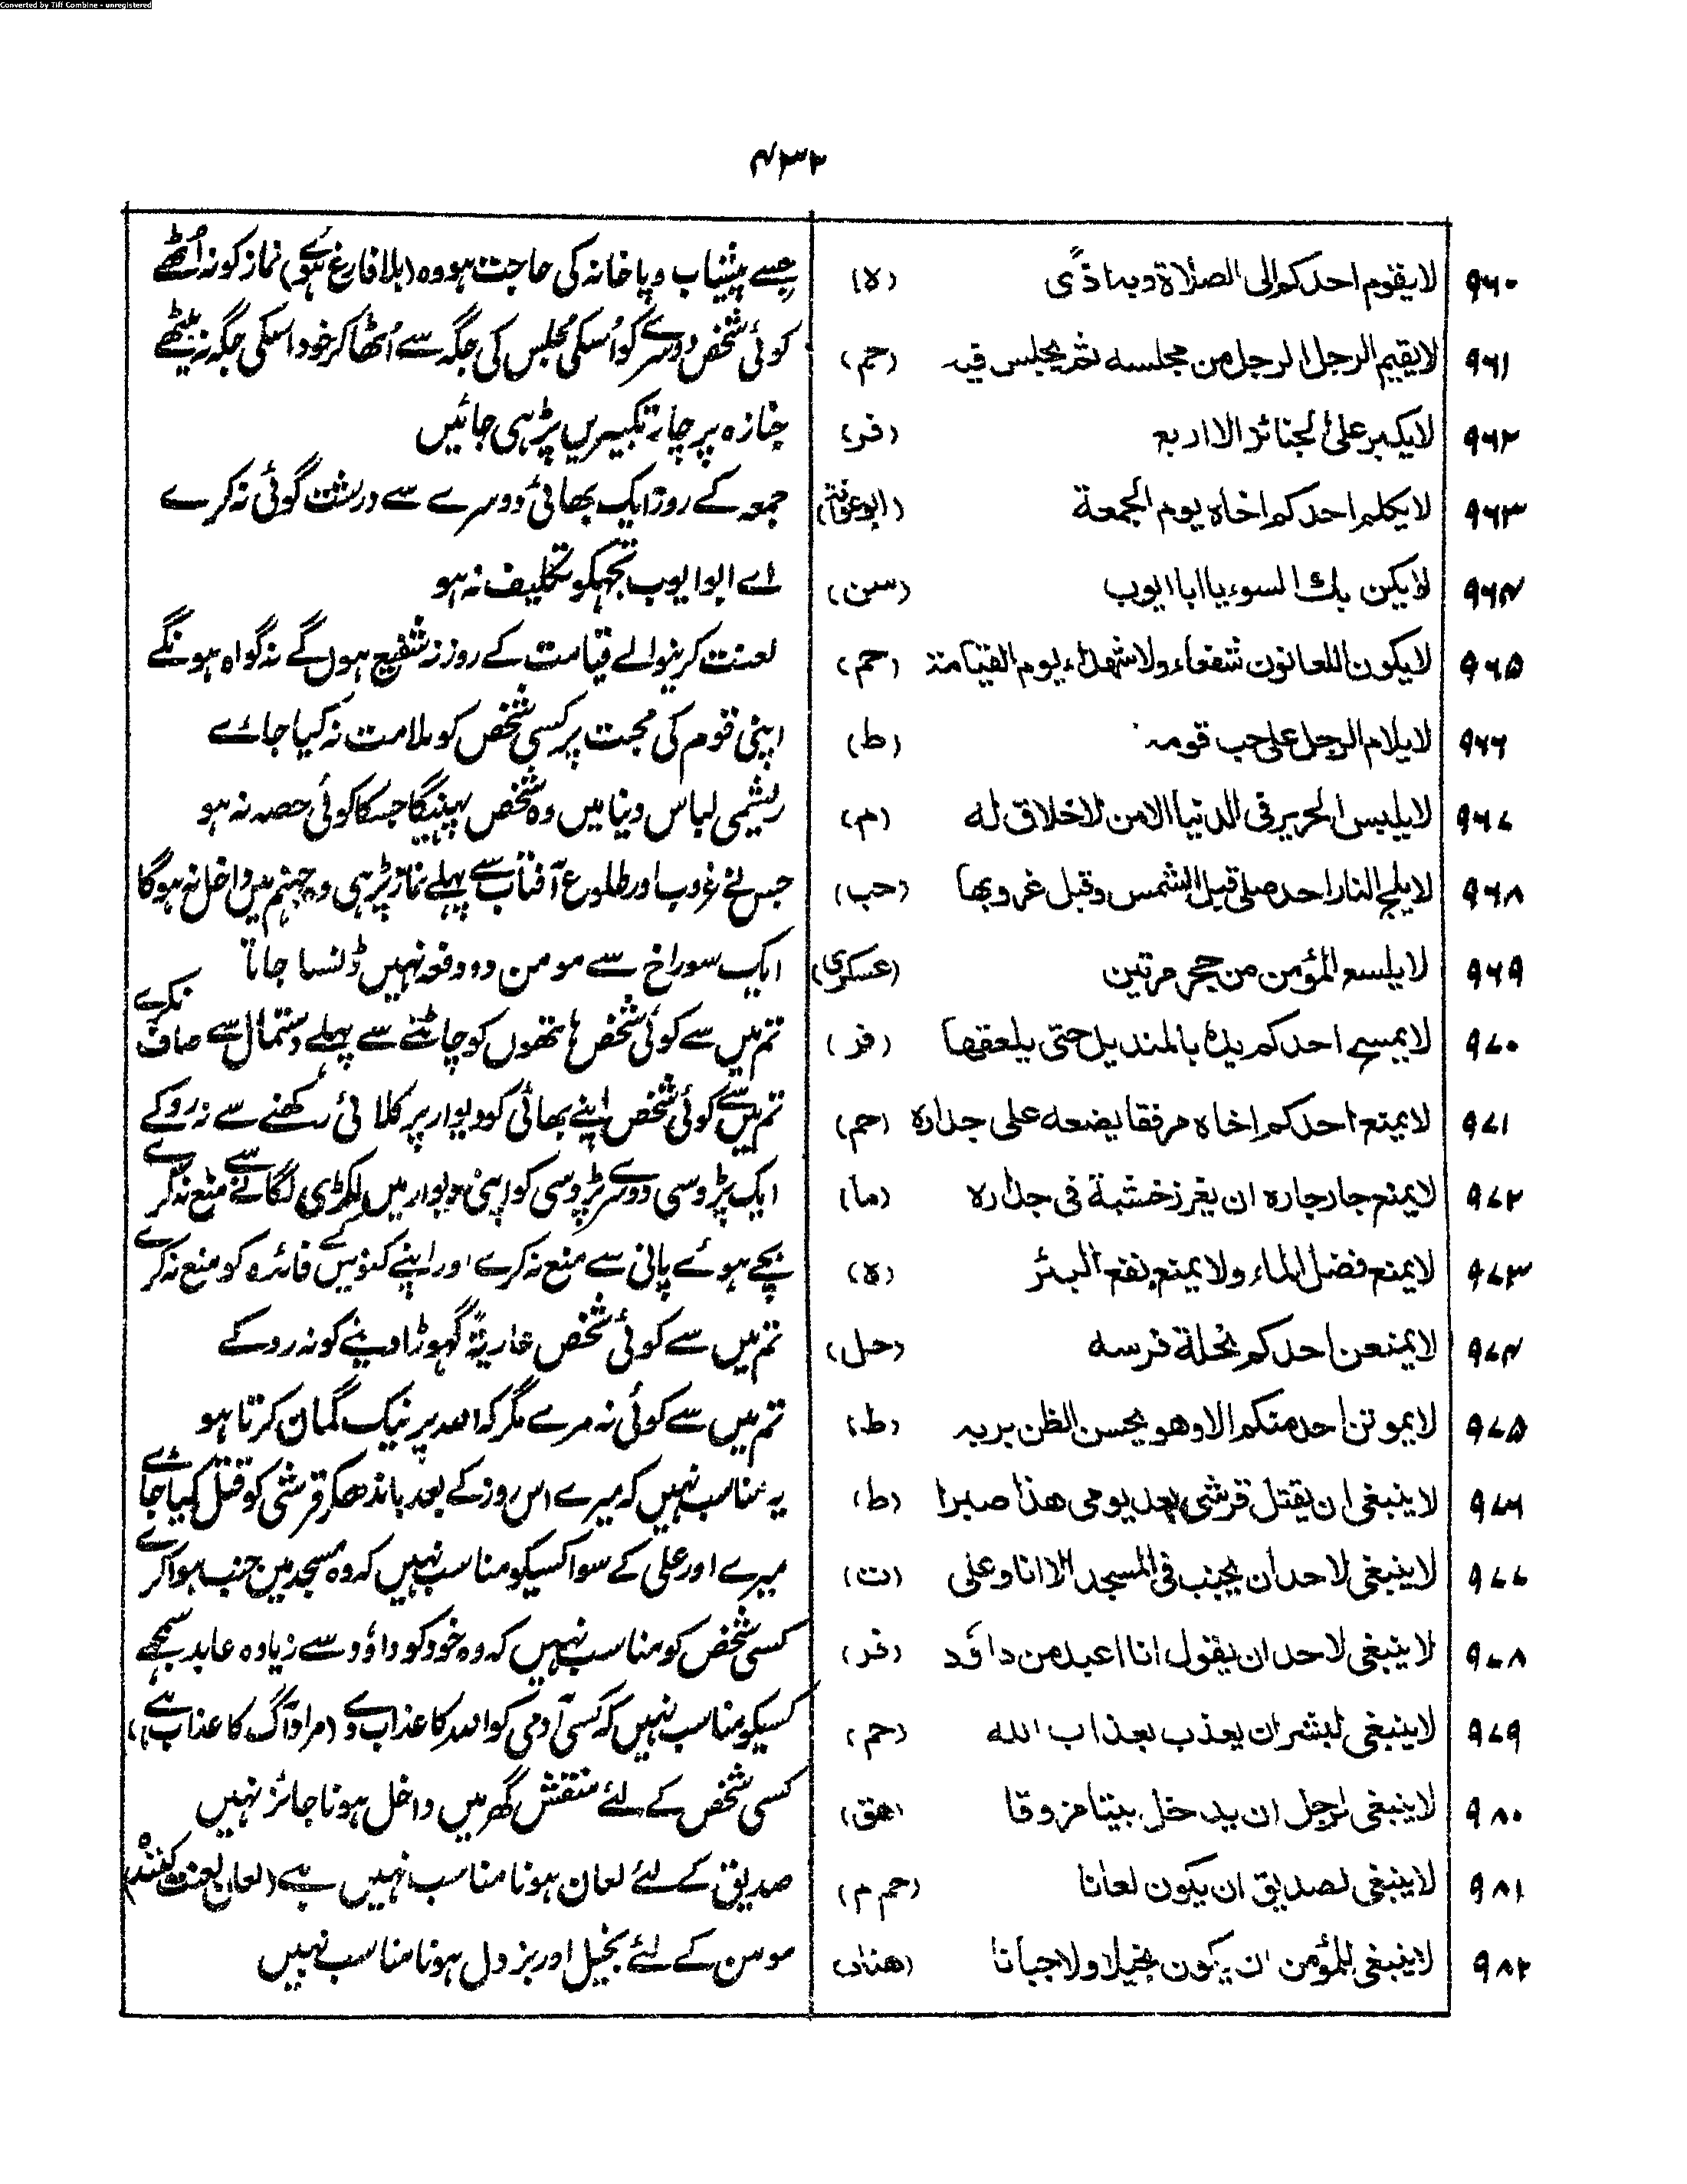 Converted by Tiff Combine - unregistered
۴۳۲
۹۶۰ لا یقوم احدکم الی الصلاة وبہ اذًی (ہ) جسے پیشاب و پاخانہ کی حاجت ہو وہ (بلا فارغ ہوئے) نماز کو نہ اُٹھے
۹۶۱ لا یقیم الرجل الرجل من مجلسه ثم یجلس فیہ (حم) کوئی شخص دوسرے کو اُسکی مجلس کی جگہ سے اُٹھا کر خود اسکی جگہ نہ بیٹھے
۹۶۲ لا یکبر علی الجنائز الا اربع (فر) جنازہ پر چار تکبیریں پڑہی جائیں
۹۶۳ لا یکلم احدکم اخاه یوم الجمعة (ابوعوانہ) جمعہ کے روز ایک بھائی دوسرے سے درشت گوئی نہ کرے
۹۶۴ لا یکن بك السوء یا ابا ایوب (سن) اے ابو ایوب تجہکو تکلیف نہ ہو
۹۶۵ لا یکون اللعانون شفعاء ولا شهداء یوم القیامة (حم) لعنت کرنیوالے قیامت کے روز نہ شفیع ہوں گے نہ گواہ ہونگے
۹۶۶ لا یلام الرجل علی حب قومہ (ط) اپنی قوم کی محبت پر کسی شخص کو ملامت نہ کیا جائے
۹۶۷ لا یلبس الحریر فی الدنیا الا من لا خلاق له (م) ریشمی لباس دنیا میں وہ شخص پہنیگا جسکا کوئی حصہ نہ ہو
۹۶۸ لا یلج النار احد صلی قبل الشمس وقبل غروبها (حب) جس نے غروب اور طلوع آفتاب سے پہلے نماز پڑہی وہ جہنم میں داخل نہ ہوگا
۹۶۹ لا یلسع المؤمن من حجر مرتین (عسکری) ایک سوراخ سے مومن دو دفعہ نہیں ڈنسا جاتا
۹۷۰ لا یمسح احدکم یده بالمندیل حتی یلعقها (فر) تم میں سے کوئی شخص ہاتھوں کو چاٹنے سے پہلے دستمال سے صاف نکرے
۹۷۱ لا یمنع احدکم اخاه مرفقا یضعه علی جداره (حم) تم میں سے کوئی شخص اپنے بھائی کو دیوار پر کلائی رکھنے سے نہ روکے
۹۷۲ لا یمنع جار جاره ان یغرز خشبة فی جداره (ما) ایک پڑوسی دوسرے پڑوسی کو اپنی دیوار میں لکڑی لگانے سے منع نہ کرے
۹۷۳ لا یمنع فضل الماء ولا یمنع نقع البئر (ہ) بچے ہوئے پانی سے منع نہ کرے اور اپنے کنوئیں کے فائدہ کو منع نہ کرے
۹۷۴ لا یمنعن احدکم نحلة فرسه (حل) تم میں سے کوئی شخص عاریۃً گہوڑا دینے کو نہ روکے
۹۷۵ لا یموتن احد منکم الا وهو یحسن الظن بربہ (ط) تم میں سے کوئی نہ مرے مگر کہ اللہ پر نیک گمان کرتا ہو
۹۷۶ لا ینبغی ان یقتل قرشی بعد یومی هذا صبرا (ط) یہ مناسب نہیں کہ میرے اس روز کے بعد باندھکر قرشی کو قتل کیا جائے
۹۷۷ لا ینبغی لاحد ان یجنب فی المسجد الا انا وعلی (ت) میرے اور علی کے سوا کسیکو مناسب نہیں کہ وہ مسجد میں جنب ہوا کرے
۹۷۸ لا ینبغی لاحد ان یقول انا اعبد من داؤد (فر) کسی شخص کو مناسب نہیں کہ وہ خود کو داؤد سے زیادہ عابد سمجھے
۹۷۹ لا ینبغی لبشر ان یعذب بعذاب الله (حم) کسیکو مناسب نہیں کہ کسی آدمی کو اللہ کا عذاب دے (مراد آگ کا عذاب ہے)
۹۸۰ لا ینبغی لرجل ان یدخل بیتا مزوقا (هق) کسی شخص کے لئے منقش گھر میں داخل ہونا جائز نہیں
۹۸۱ لا ینبغی لصدیق ان یکون لعانا (حم م) صدیق کے لئے لعان ہونا مناسب نہیں ہے (لعان لعنت کنندہ)
۹۸۲ لا ینبغی للمؤمن ان یکون بخیلا ولا جبانا (هناد) مومن کے لئے بخیل اور بزدل ہونا مناسب نہیں